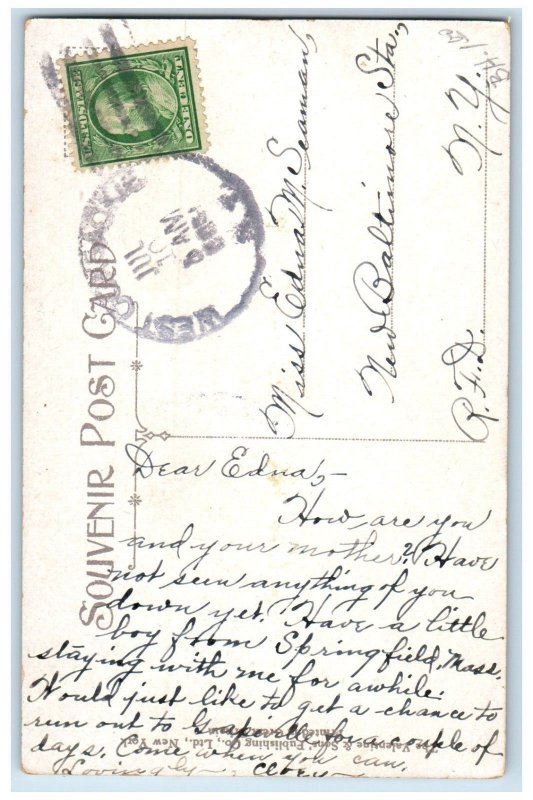 SOUVENIR POST CARD
U.S. POSTAGE
ONE CENT
JUL
AM
WEST
Miss Edna M. Seaman,
New Baltimore Sta.,
R.F.D. N.Y.
Dear Edna,-
How are you
and your mother? Have
not seen anything of you
down yet. Have a little
boy from Springfield, Mass.
staying with me for awhile.
Would just like to get a chance to
run out to Grapeville for a couple of
days. Come when you can.
Lovingly
The Valentine & Sons' Publishing Co., Ltd., New York
Printed in